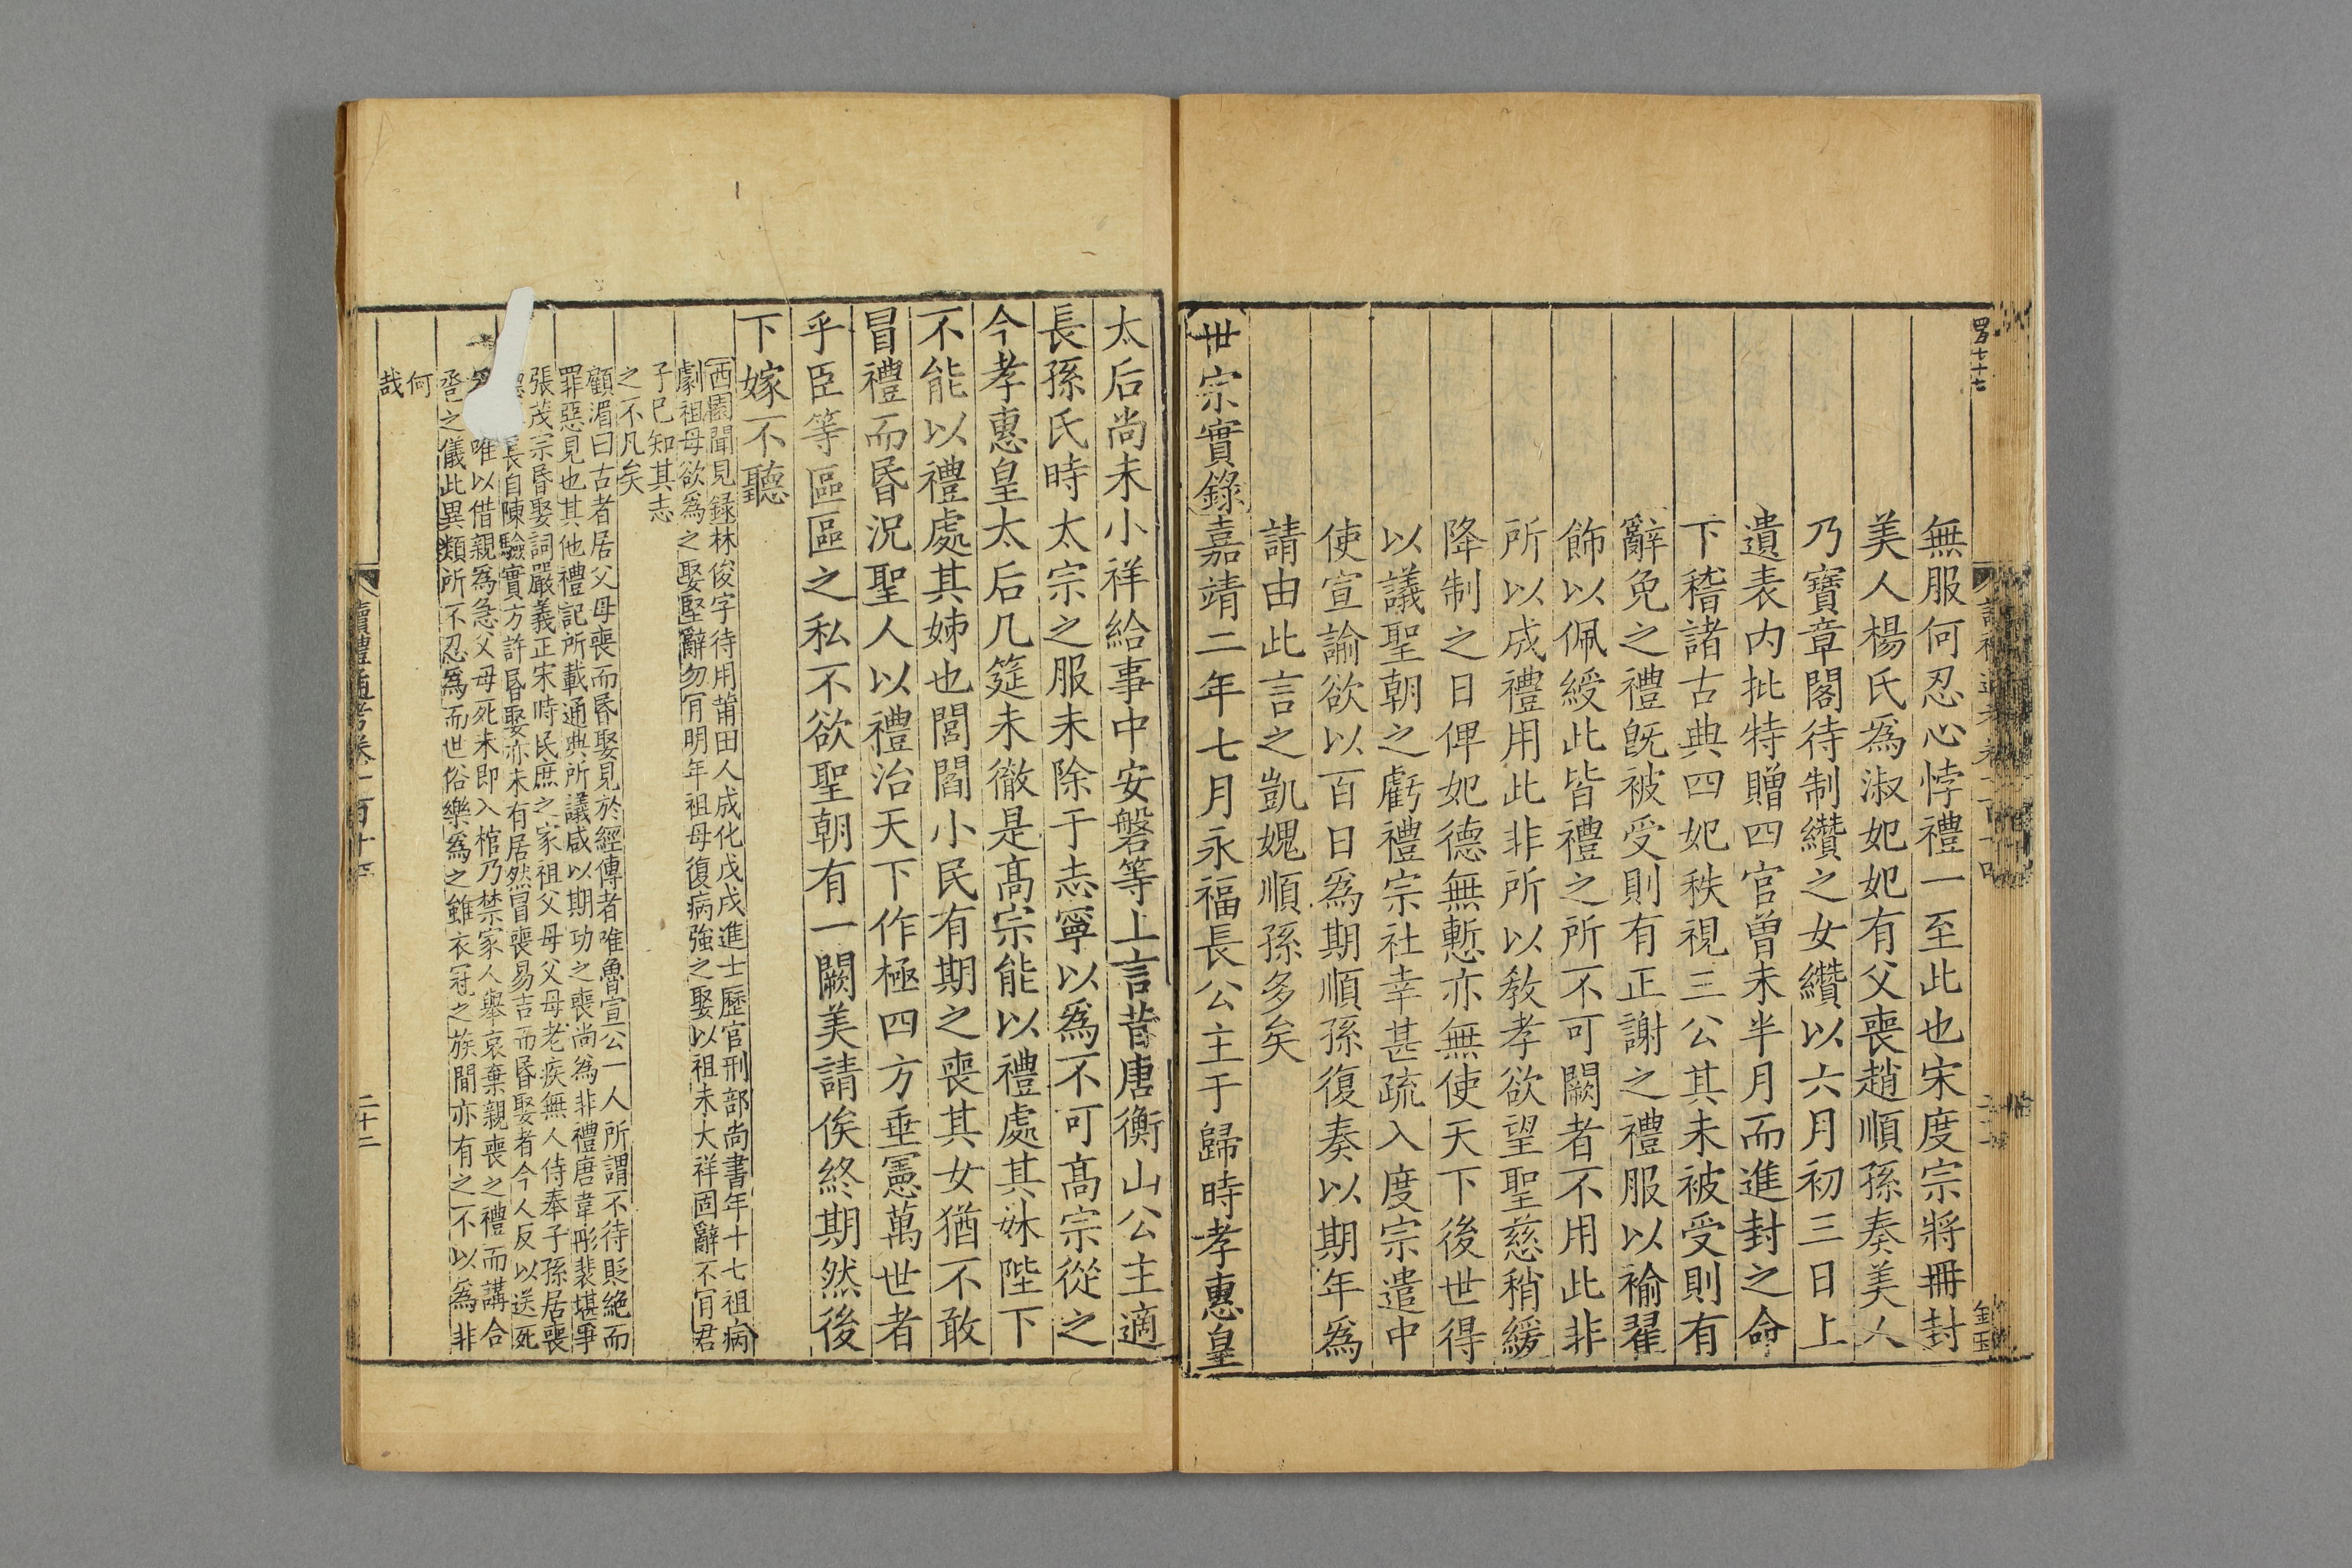 無服何忍心悖禮一至此也宋度宗將冊封
美人楊氏爲淑妃妃有父喪趙順孫奏美人
乃寶章閣待制纘之女纘以六月初三日上
遺表内批特贈四官曽未半月而進封之命
下稽諸古典四妃秩視三公其未被受則有
辭免之禮旣被受則有正謝之禮服以褕翟
飾以佩綬此皆禮之所不可闕者不用此非
所以成禮用此非所以敎孝欲望聖慈稍緩
降制之日俾妃德無慙亦無使天下後世得
以議聖朝之虧禮宗社幸甚疏入度宗遣中
使宣諭欲以百日爲期順孫復奏以期年爲
請由此言之凱媿順孫多矣
世宗實錄嘉靖二年七月永福長公主于歸時孝惠皇
太后尚未小祥給事中安磐等上言昔唐衡山公主適
長孫氏時太宗之服未除于志寧以爲不可髙宗從之
今孝惠皇太后几筵未徹是髙宗能以禮處其妹陛下
不能以禮處其姊也閭閻小民有期之喪其女猶不敢
冒禮而昏況聖人以禮治天下作極四方垂憲萬世者
乎臣等區區之私不欲聖朝有一闕美請俟終期然後
下嫁不聽
西園聞見録林俊字待用莆田人成化戊戌進士歷官刑部尚書年十七祖病
劇祖母欲爲之娶堅辭勿肎明年祖母復病強之娶以祖未大祥固辭不肎君
子已知其志
之不凡矣
顧湄曰古者居父母喪而昏娶見於經傳者唯魯宣公一人所謂不待貶絶而
罪惡見也其他禮記所載通典所議咸以期功之喪尚爲非禮唐韋彤裴堪爭
張茂宗昏娶詞嚴義正宋時民庶之家祖父母父母老疾無人侍奉子孫居喪
長自陳驗實方許昏娶亦未有居然冒喪易吉而昏娶者今人反以送死
唯以借親爲急父母死未即入棺乃禁家人舉哀棄親喪之禮而講合
巹之儀此異類所不忍爲而世俗樂爲之雖衣冠之族間亦有之不以爲非
何
哉
讀禮通考卷一百十四
二十二